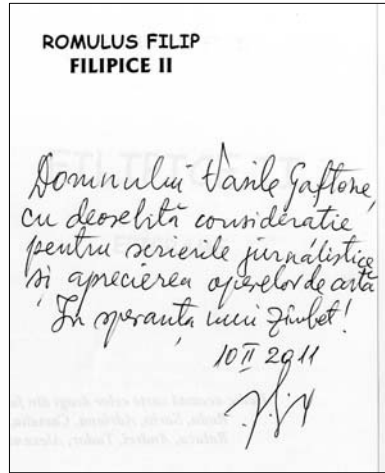 ROMULUS FILIP
FILIPICE II
Domnului Vasile Gaftone,
cu deosebită considerație
pentru scrierile jurnalistice
și aprecierea operelor de artă
În speranța unui zîmbet!
10 II 2011